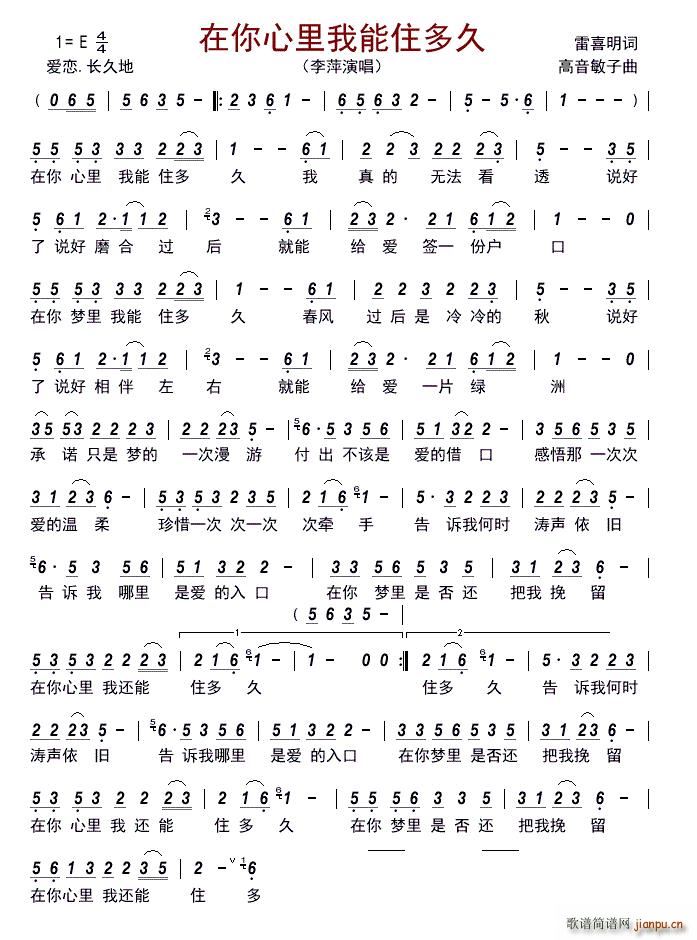 在你心里我能住多久
1= E 4/4
雷喜明词
爱恋.长久地
（李萍演唱）
高音敏子曲
( 0 6 5 | 5 6 3 5 - |: 2 3 6 1 - | 6 5 6 3 2 - | 5 - 5·6 | 1 - - ) |
5 5 5 3 3 3 2 2 3 | 1 - 6 1 | 2 3 2 2 2 3 | 5 - 3 5 |
在你 心里 我能 住多 久 我 真的 无法 看 透 说好
5 6 1 2·1 1 2 | 3 - 6 1 | 2 3 2· 6 1 2 | 1 - 0 |
了 说好 磨合 过 后 就能 给 爱 签一 份户 口
5 5 5 3 3 3 2 2 3 | 1 - 3 5 | 2 2 3 2 2 3 | 5 - 3 5 |
在你 梦里 我能 住多 久 春风 过 后 是 冷 冷的 秋 说好
5 6 1 2·1 1 2 | 3 - 6 1 | 2 3 2· 6 1 2 | 1 - 0 |
了 说好 相伴 左 右 就能 给 爱 一片 绿 洲
3 5 5 3 2 2 2 3 | 2 2 2 3 5 - | 6·5 3 5 6 | 5 1 3 2 2 - | 3 5 6 5 5 3 5 |
承 诺 只是 梦的 一次漫 游 付出 不该是 爱的借 口 感悟那 一次次
3 1 2 3 6 - | 5 3 5 3 2 3 2 | 2 1 6 1 - | 5·3 2 3 2 3 | 2 2 2 3 5 |
爱的温 柔 珍惜一次 次一次 次牵 手 告 诉我何时 涛声 依 旧
6·5 3 5 6 | 5 1 3 2 2 - | 3 3 5 6 5 5 6 | 3 1 2 3 6 - |
告 诉 我 哪里 是爱 的入口 在你 梦里 是否还 把我 挽 留
( 5 6 3 5 - |
1 2
5 3 5 3 2 2 2 3 | 2 1 6 1 - | 1 - 0 0 :| 2 1 6 1 - | 5·3 2 2 3 |
在你心里 我还能 住多 久 住多 久 告 诉我何时
2 2 2 3 5 - | 6·5 3 5 6 | 5 1 3 2 2 - | 3 3 5 6 5 5 6 | 3 1 2 3 6 - |
涛声依 旧 告 诉我哪里 是爱 的入口 在你梦里 是否还 把我挽 留
5 3 5 3 2 2 2 3 | 2 1 6 1 - | 5 5 5 6 5 5 6 | 3 1 2 3 6 - |
在你 心里 我 还 能 住 多 久 在你 梦里 是 否 还 把我 挽 留
5 6 1 3 2 2 3 5 | 2 - 6
在你心里 我 还能 住 多
歌谱简谱网
jianpu.cn